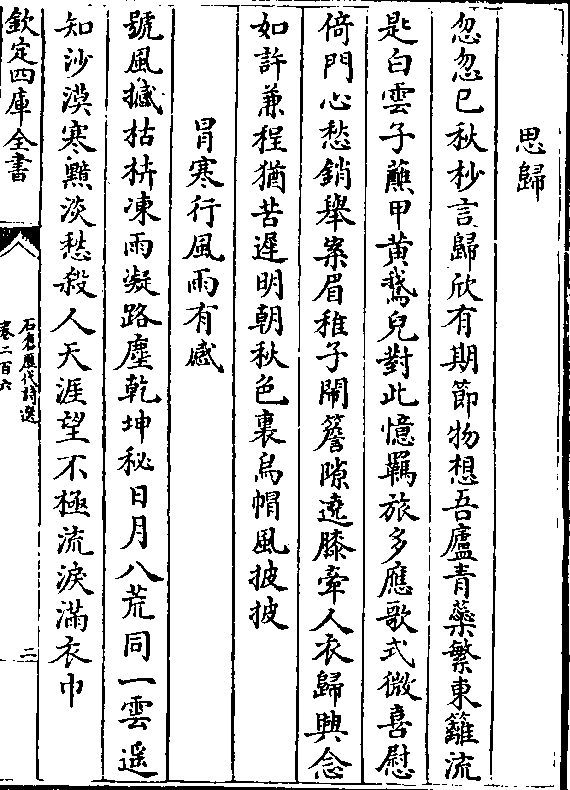 思歸
忽忽已秋杪言歸欣有期節物想吾廬青蘂繁東籬流
匙白雲子蘸甲黄鵞兒對此憶羈旅多應歌式微喜慰
倚門心愁銷舉案眉稚子鬧簷隙遶膝牽人衣歸興念
如許兼程猶苦遲明朝秋色裏烏帽風披披
冒寒行風雨有感
號風撼枯枿凍雨凝路塵乾坤秘日月八荒同一雲遥
知沙漠寒黯淡愁殺人天涯望不極流淚滿衣巾
欽定四庫全書
石倉歷代詩選
卷二百六
二